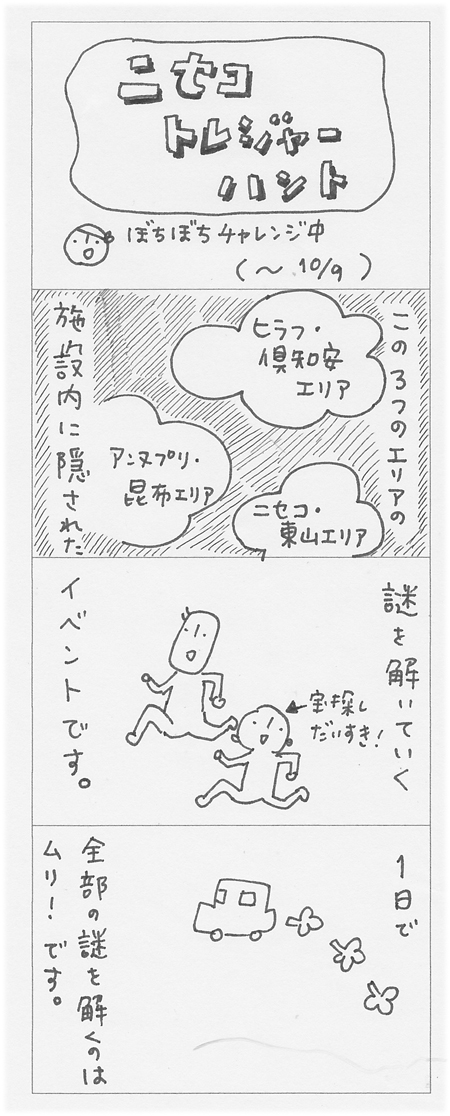 ニセコ
トレジャー
ハント
ぼちぼちチャレンジ中
(〜10/9)
この3つのエリアの
ヒラフ・
倶知安
エリア
アンヌプリ・
昆布エリア
ニセコ・
東山エリア
施設内に隠された
謎を解いていく
宝探し
だいすき!
イベントです。
1日で
全部の謎を解くのは
ムリ!です。